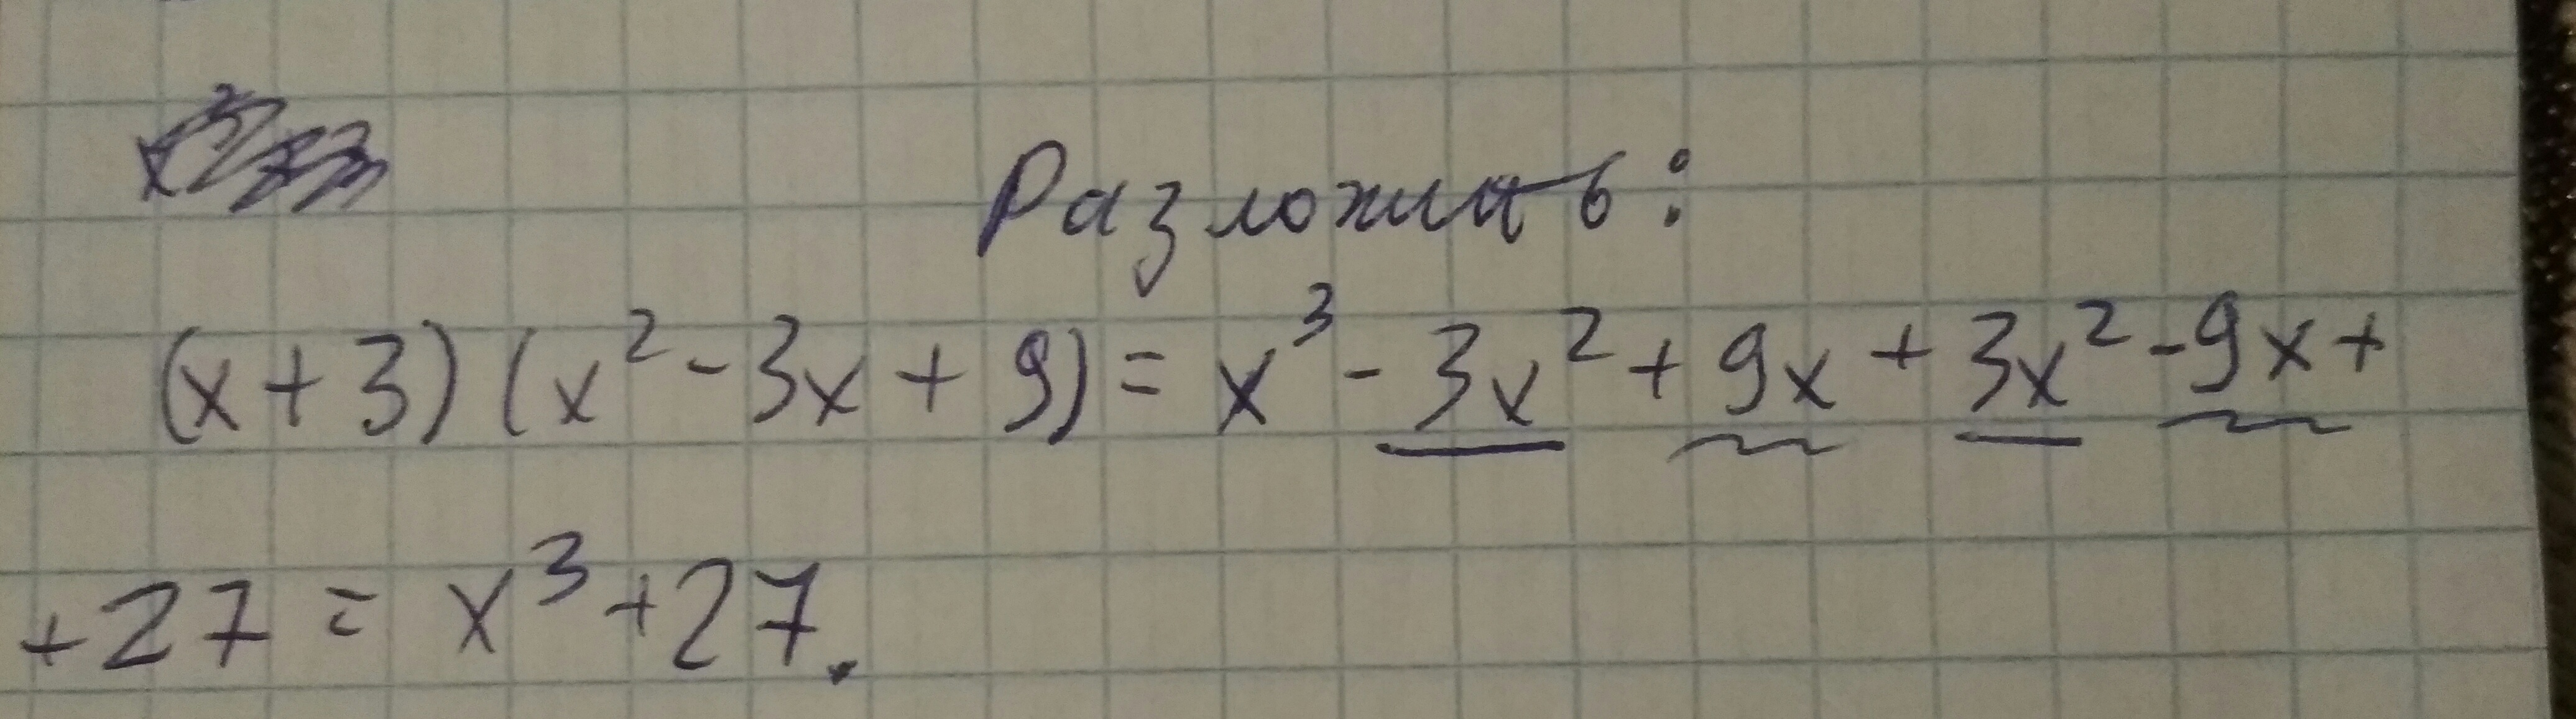 Разложить:
(x+3)(x²-3x+9)=x³-3x²+9x+3x²-9x+
+27=x³+27.